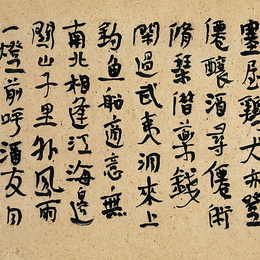 鷄犬亦登
僊釀酒尋僊術
脩琴借藥錢
閑過武夷洞來上
釣魚船適意無
南北相逢江海邊
關山千里外風雨
一燈前呼酒友